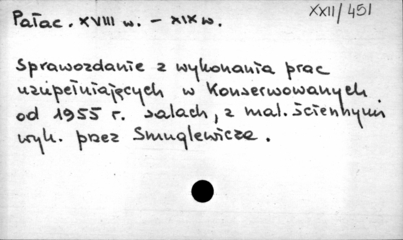 XXII/451
Pałac. XVIII w. – XIX w.
Sprawozdanie z wykonania prac
uzupełniających w konserwowanych
od 1955 r. salach, z mal. ściennymi
wyk. przez Smuglewicza.